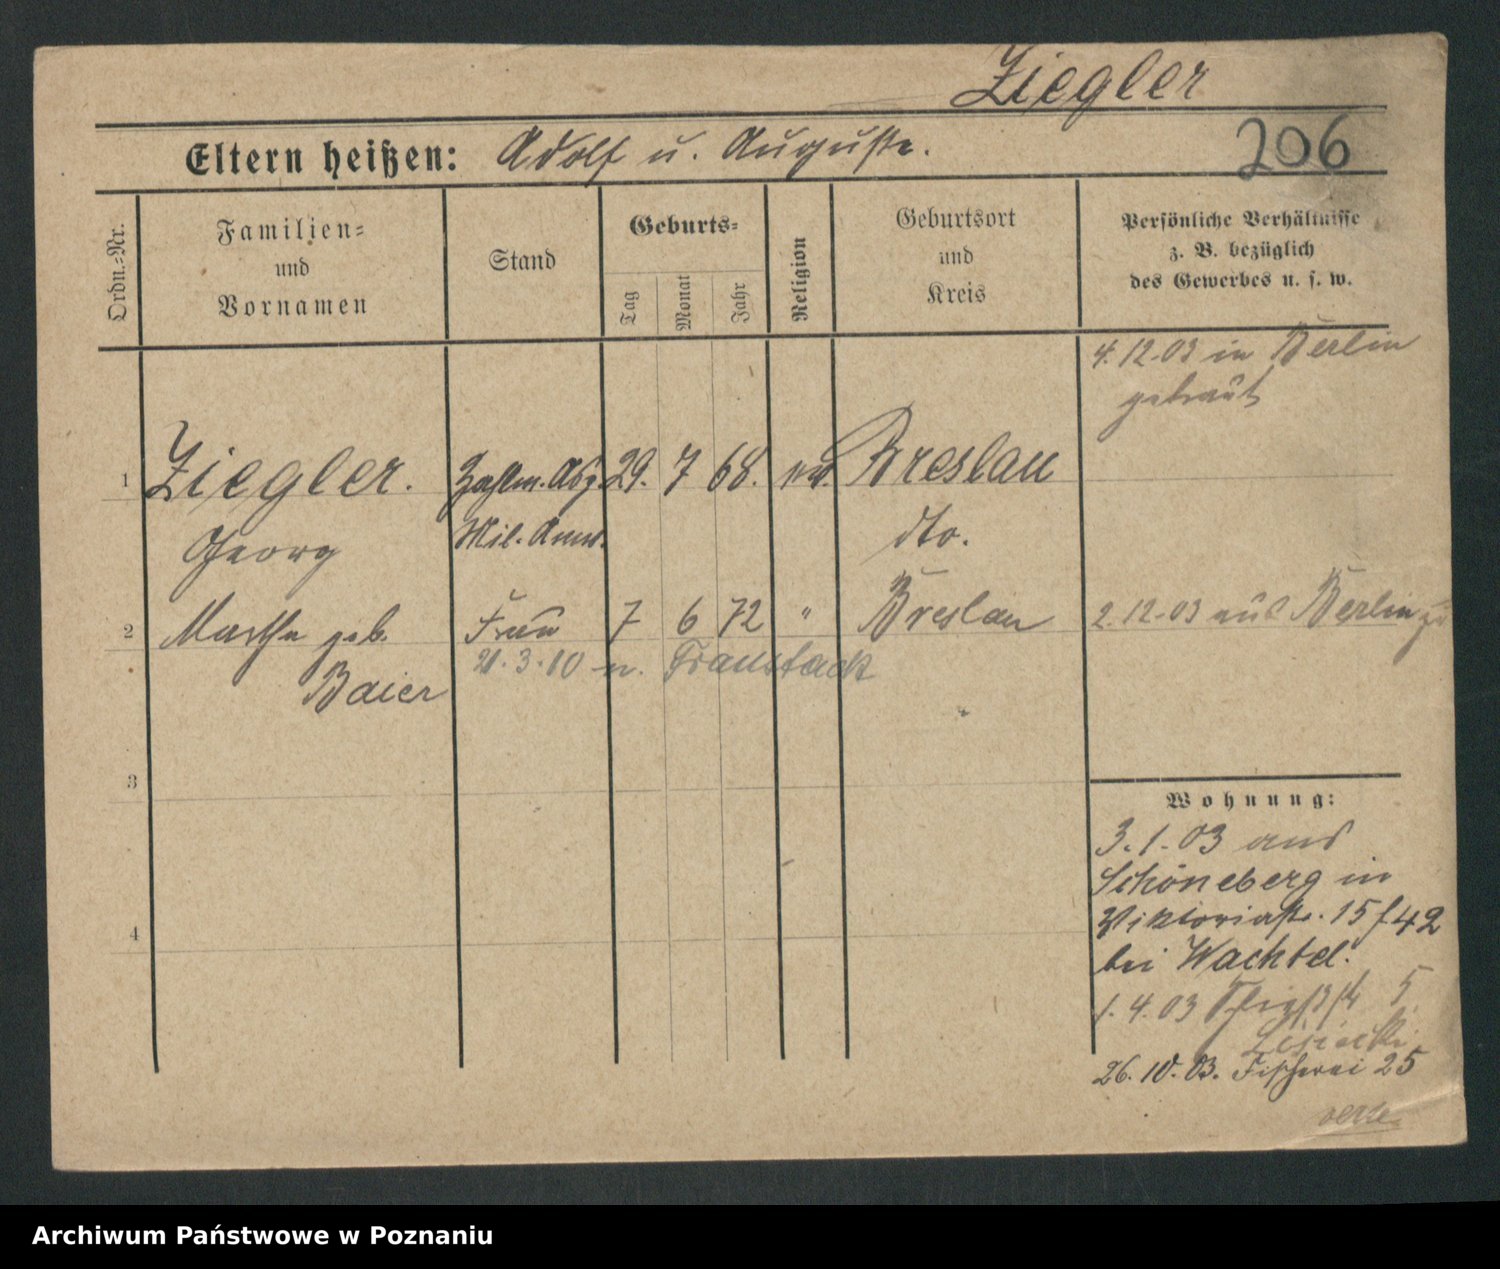 Ziegler
Eltern heißen: Adolf u. Auguste.
206
Ordn.-Nr.
Familien-
und
Vornamen
Stand
Geburts-
Tag
Monat
Jahr
Religion
Geburtsort
und
Kreis
Persönliche Verhältnisse
z. B. bezüglich
des Gewerbes u. s. w.
4. 12. 03 in Berlin
getraut
1 Ziegler. Zahlm. 29. 7 68. ev. Breslau
Georg Mil. Anw. dto.
2 Martha geb. Frau 7 6 72 " Breslau 2. 12. 03 aus Berlin
Baier
21. 3. 10 n. Fraustadt
3
4
Wohnung:
3. 1. 03 aus
Schöneberg in
Viktoriastr. 15 f 42
bei Wachtel.
1. 4. 03 5
26. 10. 03. Fischerei 25
Archiwum Państwowe w Poznaniu